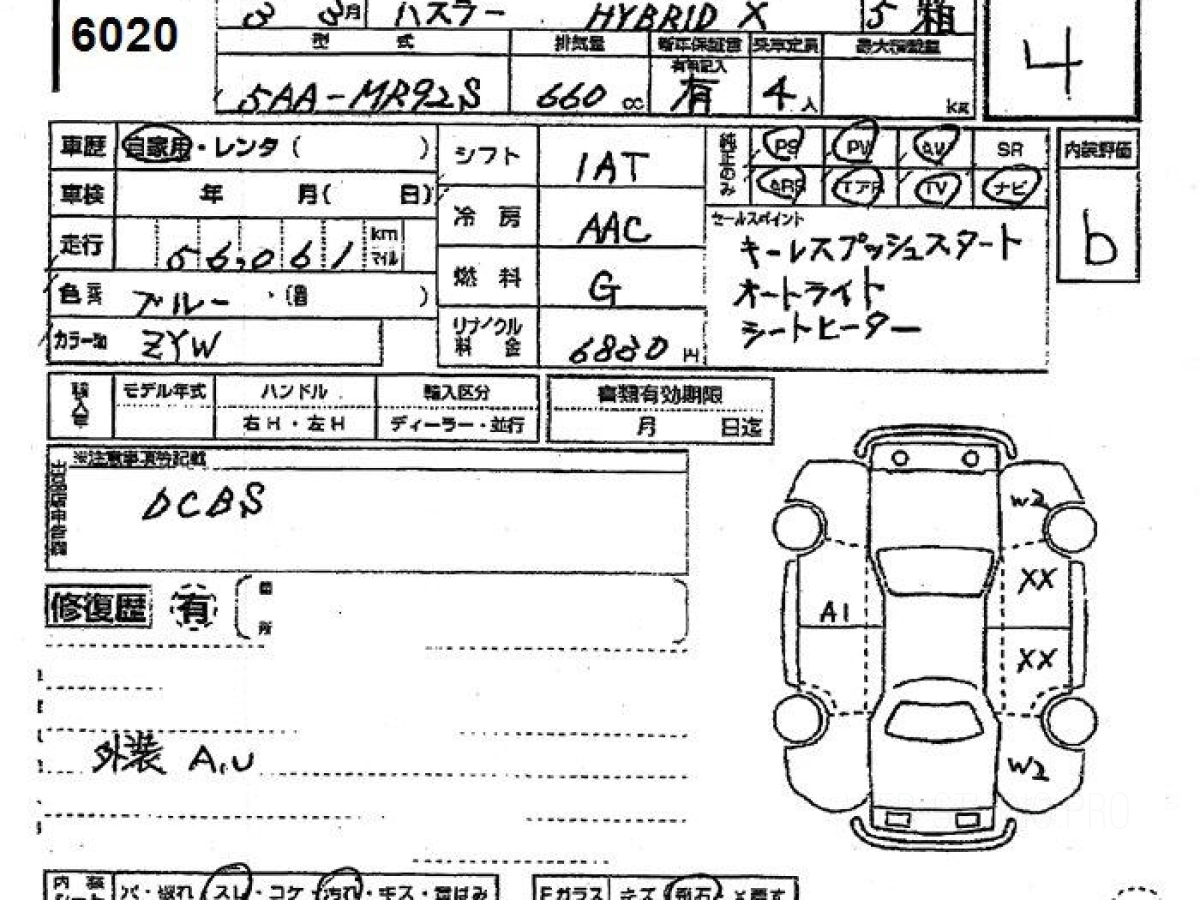 6020
3 3月 ハスラー HYBRID X 5 箱
型 式 排気量 新車保証書 乗車定員 最大積載量
有 4
5AA-MR92S 660 cc 有 4人 kg
車歴 自家用・レンタ ( )
車検 年 月( 日)
走行 56,061 km マイル
色 ブルー ( )
カラーNo ZYW
シフト IAT
冷房 AAC
燃料 G
リサイクル料金 6830 円
純正のみ PS PW AW SR
TV ナビ
内装評価
b
セールスポイント
キーレスプッシュスタート
オートライト
シートヒーター
輸入車 モデル年式 ハンドル 輸入区分 書類有効期限
右H・左H ディーラー・並行 月 日迄
※注意事項等記載
DCBS
修復歴 有 箇所
外装 A,U
W2
XX
A1
XX
W2
内装 スレ・コゲ・汚れ・キズ Fガラス キズ 飛石